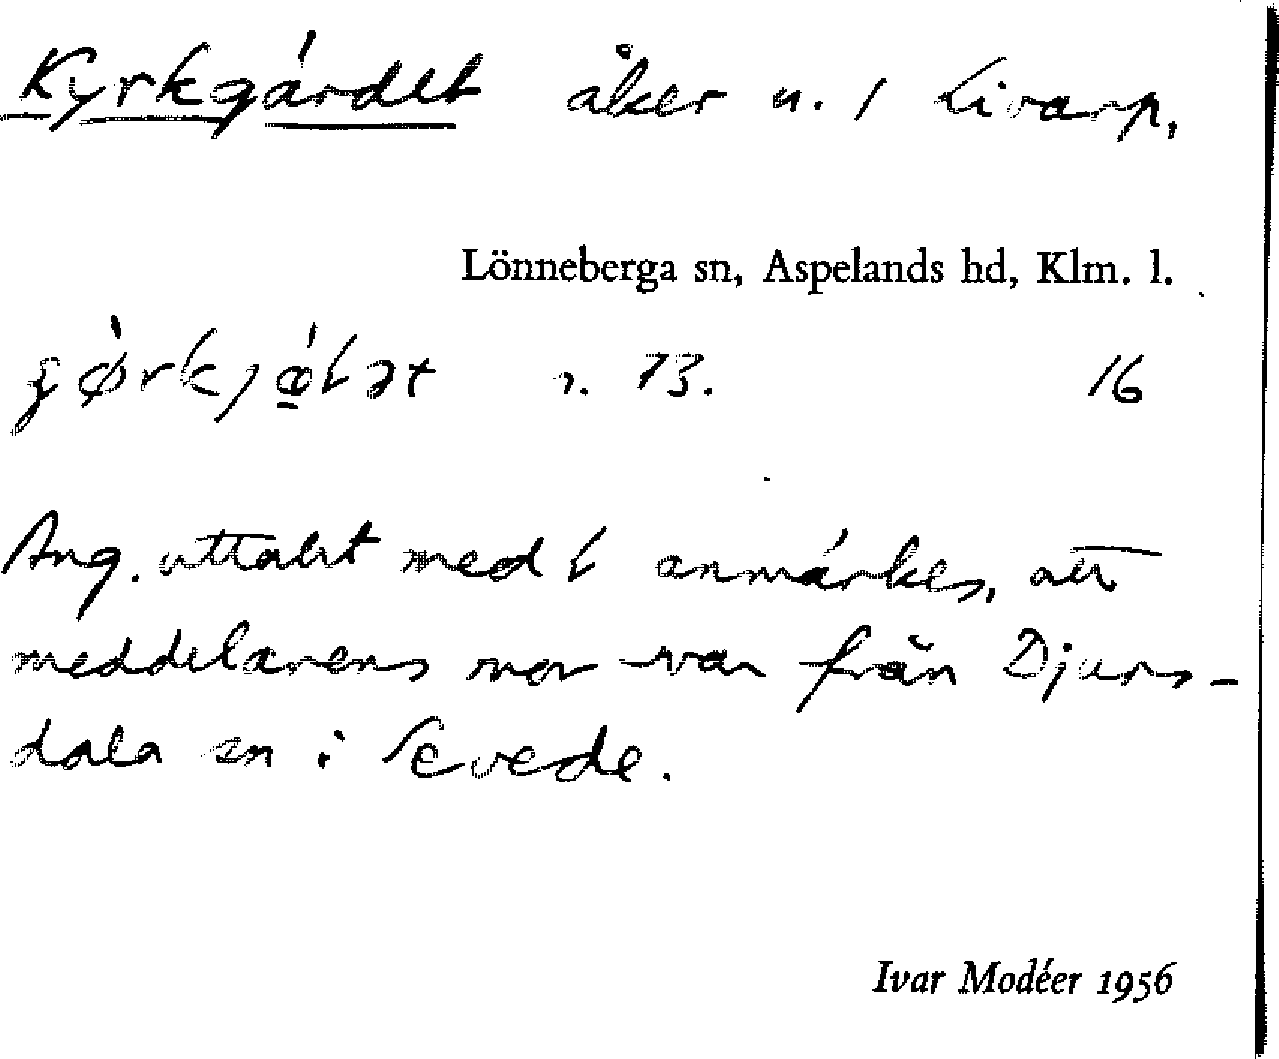 Kyrkgärdet åker u. / Livarp,
Lönneberga sn, Aspelands hd, Klm. l.
73. 16
Ang. uttalet med anmärkes, att
meddelarens mor var från Djurs-
dala sn i Sevede.
Ivar Modéer 1956